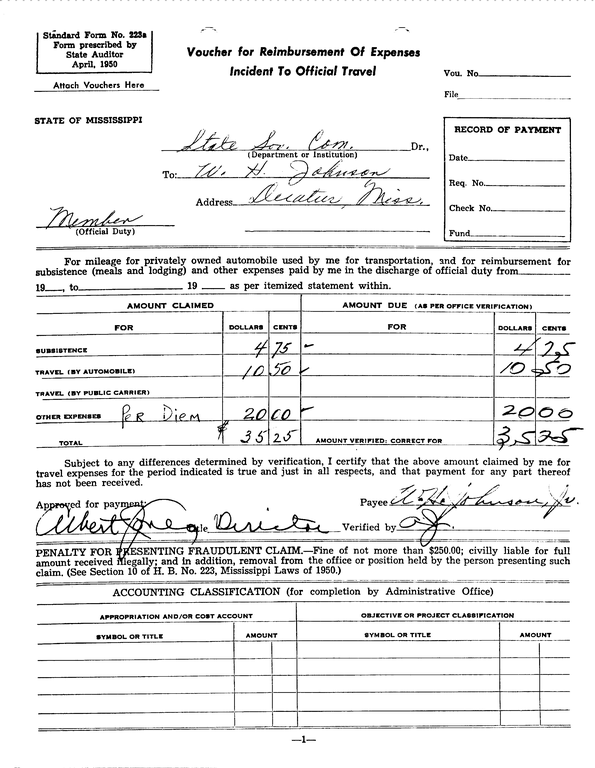 Standard Form No. 223a
Form prescribed by
State Auditor
April, 1950
Attach Vouchers Here
Voucher for Reimbursement Of Expenses
Incident To Official Travel
Vou. No.
File
STATE OF MISSISSIPPI
State Sov. Com. Dr.,
(Department or Institution)
To: W. H. Johnson
Address Decatur, Miss.
Member
(Official Duty)
RECORD OF PAYMENT
Date
Req. No.
Check No.
Fund
For mileage for privately owned automobile used by me for transportation, and for reimbursement for
subsistence (meals and lodging) and other expenses paid by me in the discharge of official duty from
19 , to 19 as per itemized statement within.
AMOUNT CLAIMED AMOUNT DUE (AS PER OFFICE VERIFICATION)
FOR DOLLARS CENTS FOR DOLLARS CENTS
SUBSISTENCE 4 75 4 75
TRAVEL (BY AUTOMOBILE) 10 50 10 50
TRAVEL (BY PUBLIC CARRIER)
OTHER EXPENSES Per Diem 20 00 20 00
TOTAL $ 35 25 AMOUNT VERIFIED: CORRECT FOR 35 25
Subject to any differences determined by verification, I certify that the above amount claimed by me for
travel expenses for the period indicated is true and just in all respects, and that payment for any part thereof
has not been received.
Approved for payment: Payee W. H. Johnson, Jr.
Albert Jones Title Director Verified by AJ.
PENALTY FOR PRESENTING FRAUDULENT CLAIM.—Fine of not more than $250.00; civilly liable for full
amount received illegally; and in addition, removal from the office or position held by the person presenting such
claim. (See Section 10 of H. B. No. 223, Mississippi Laws of 1950.)
ACCOUNTING CLASSIFICATION (for completion by Administrative Office)
APPROPRIATION AND/OR COST ACCOUNT OBJECTIVE OR PROJECT CLASSIFICATION
SYMBOL OR TITLE AMOUNT SYMBOL OR TITLE AMOUNT
—1—